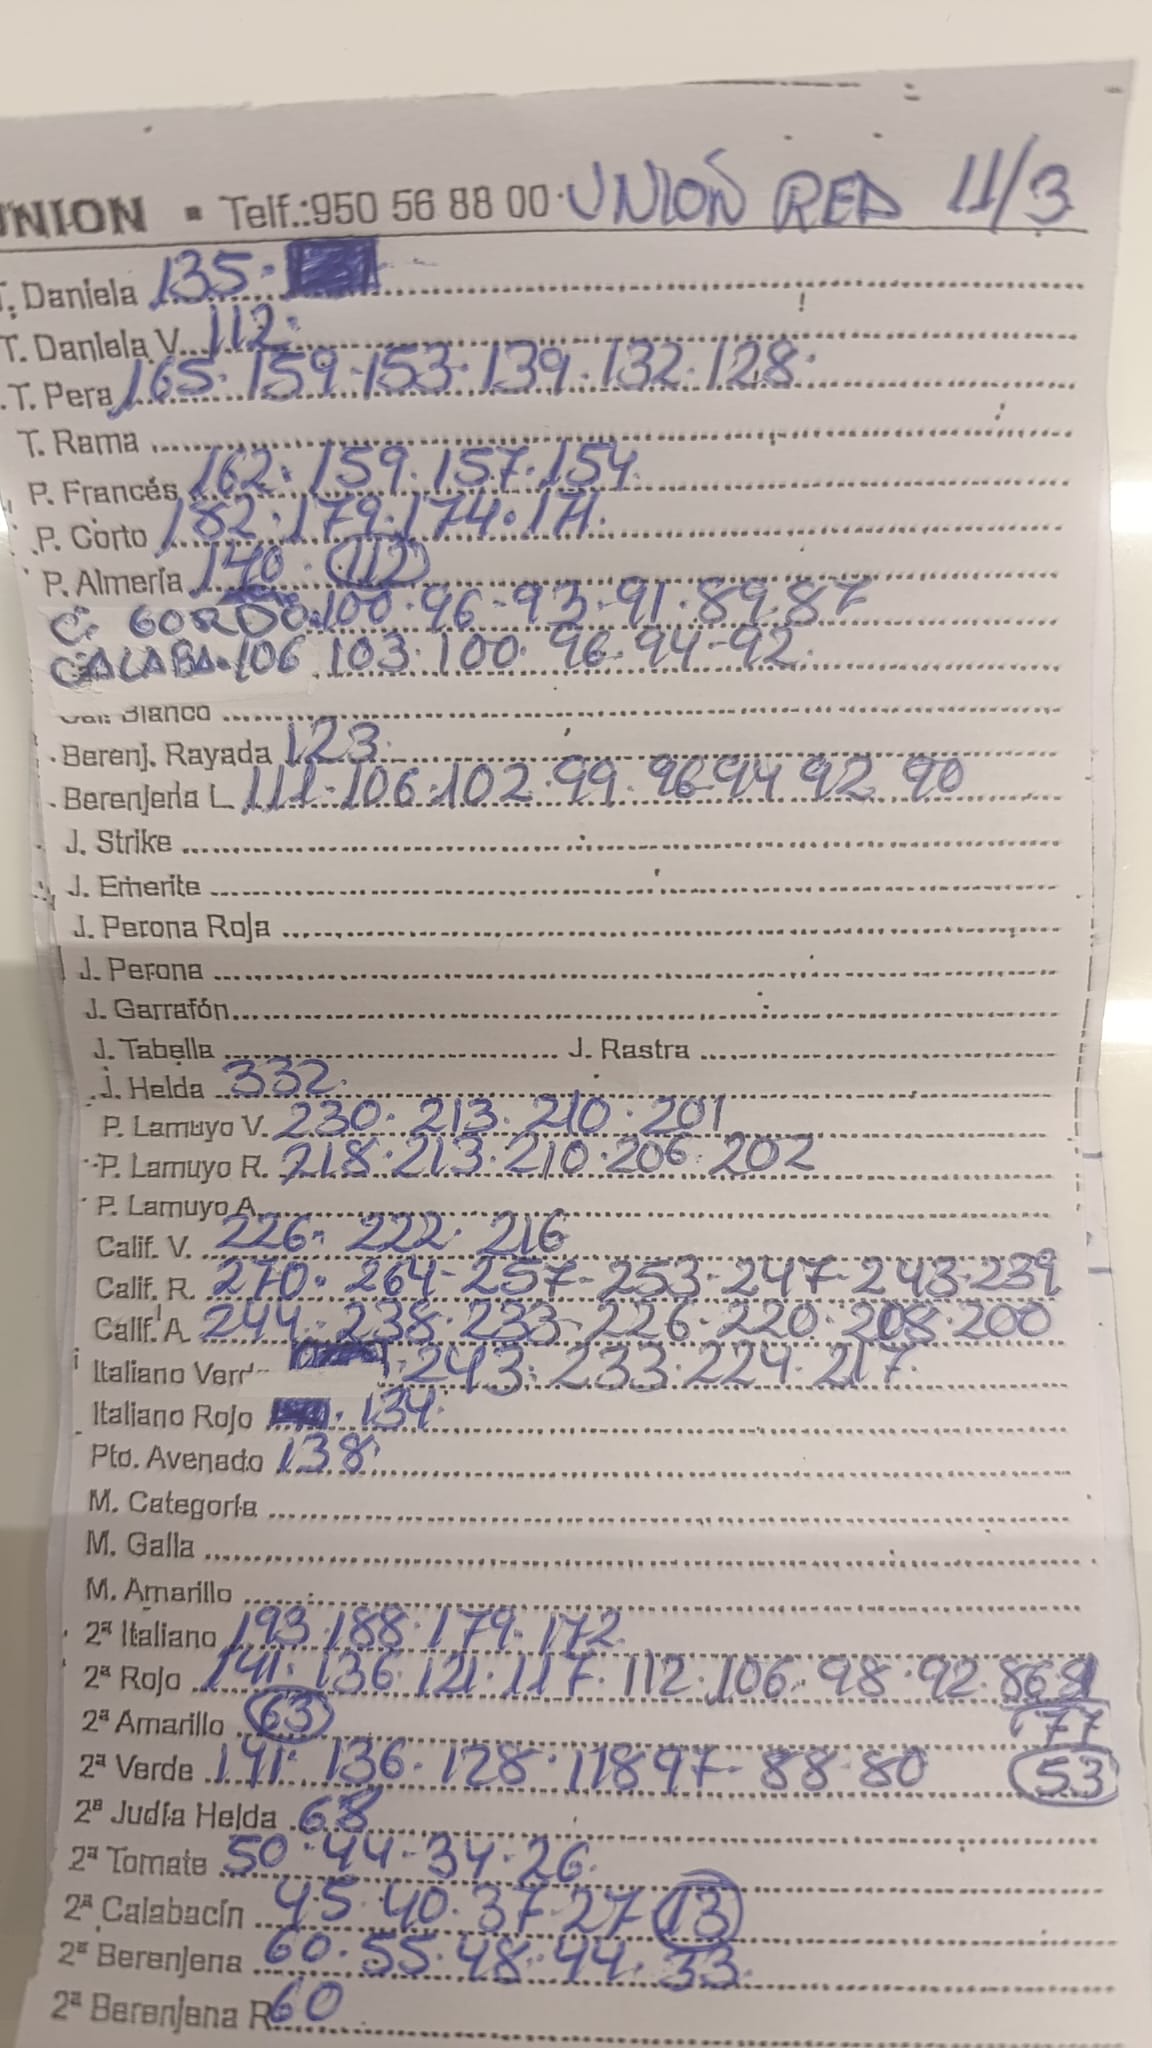 UNION • Telf.:950 56 88 00 · UNION RED 11/3
T. Daniela 135.
T. Daniela V. 112.
T. Pera 165. 159. 153. 139. 132. 128.
T. Rama
P. Francés 162. 159. 157. 154.
P. Corto 182. 179. 174. 171.
P. Almería 140. 112
C. GORDO. 100. 96-93-91. 89. 87
CALABA. 106 103. 100. 96. 94-92.
Cal. Blanco
Berenj. Rayada 123.
Berenjena L. 111. 106. 102. 99. 96-94 92 90
J. Strike
J. Emerite
J. Perona Roja
J. Perona
J. Garrafón
J. Tabella J. Rastra
J. Helda 332.
P. Lamuyo V. 230. 213. 210. 201
P. Lamuyo R. 218. 213. 210. 206. 202
P. Lamuyo A.
Calif. V. 226. 222. 216
Calif. R. 270. 264-257-253-247-243-239
Calif. A. 244. 238. 233-226. 220. 208. 200
Italiano Verd 243. 233. 224. 217.
Italiano Rojo 134.
Pto. Avenado 138
M. Categoría
M. Galla
M. Amarillo
2ª Italiano 193. 188. 179. 172.
2ª Rojo 141. 136. 121. 117. 112. 106. 98. 92. 86
2ª Amarillo 63 77
2ª Verde 141. 136. 128. 118 97-88-80 53
2ª Judía Helda 68
2ª Tomate 50. 44-34-26.
2ª Calabacín 45. 40. 37-27 13
2ª Berenjena 60. 55. 48. 44. 33.
2ª Berenjena R. 60